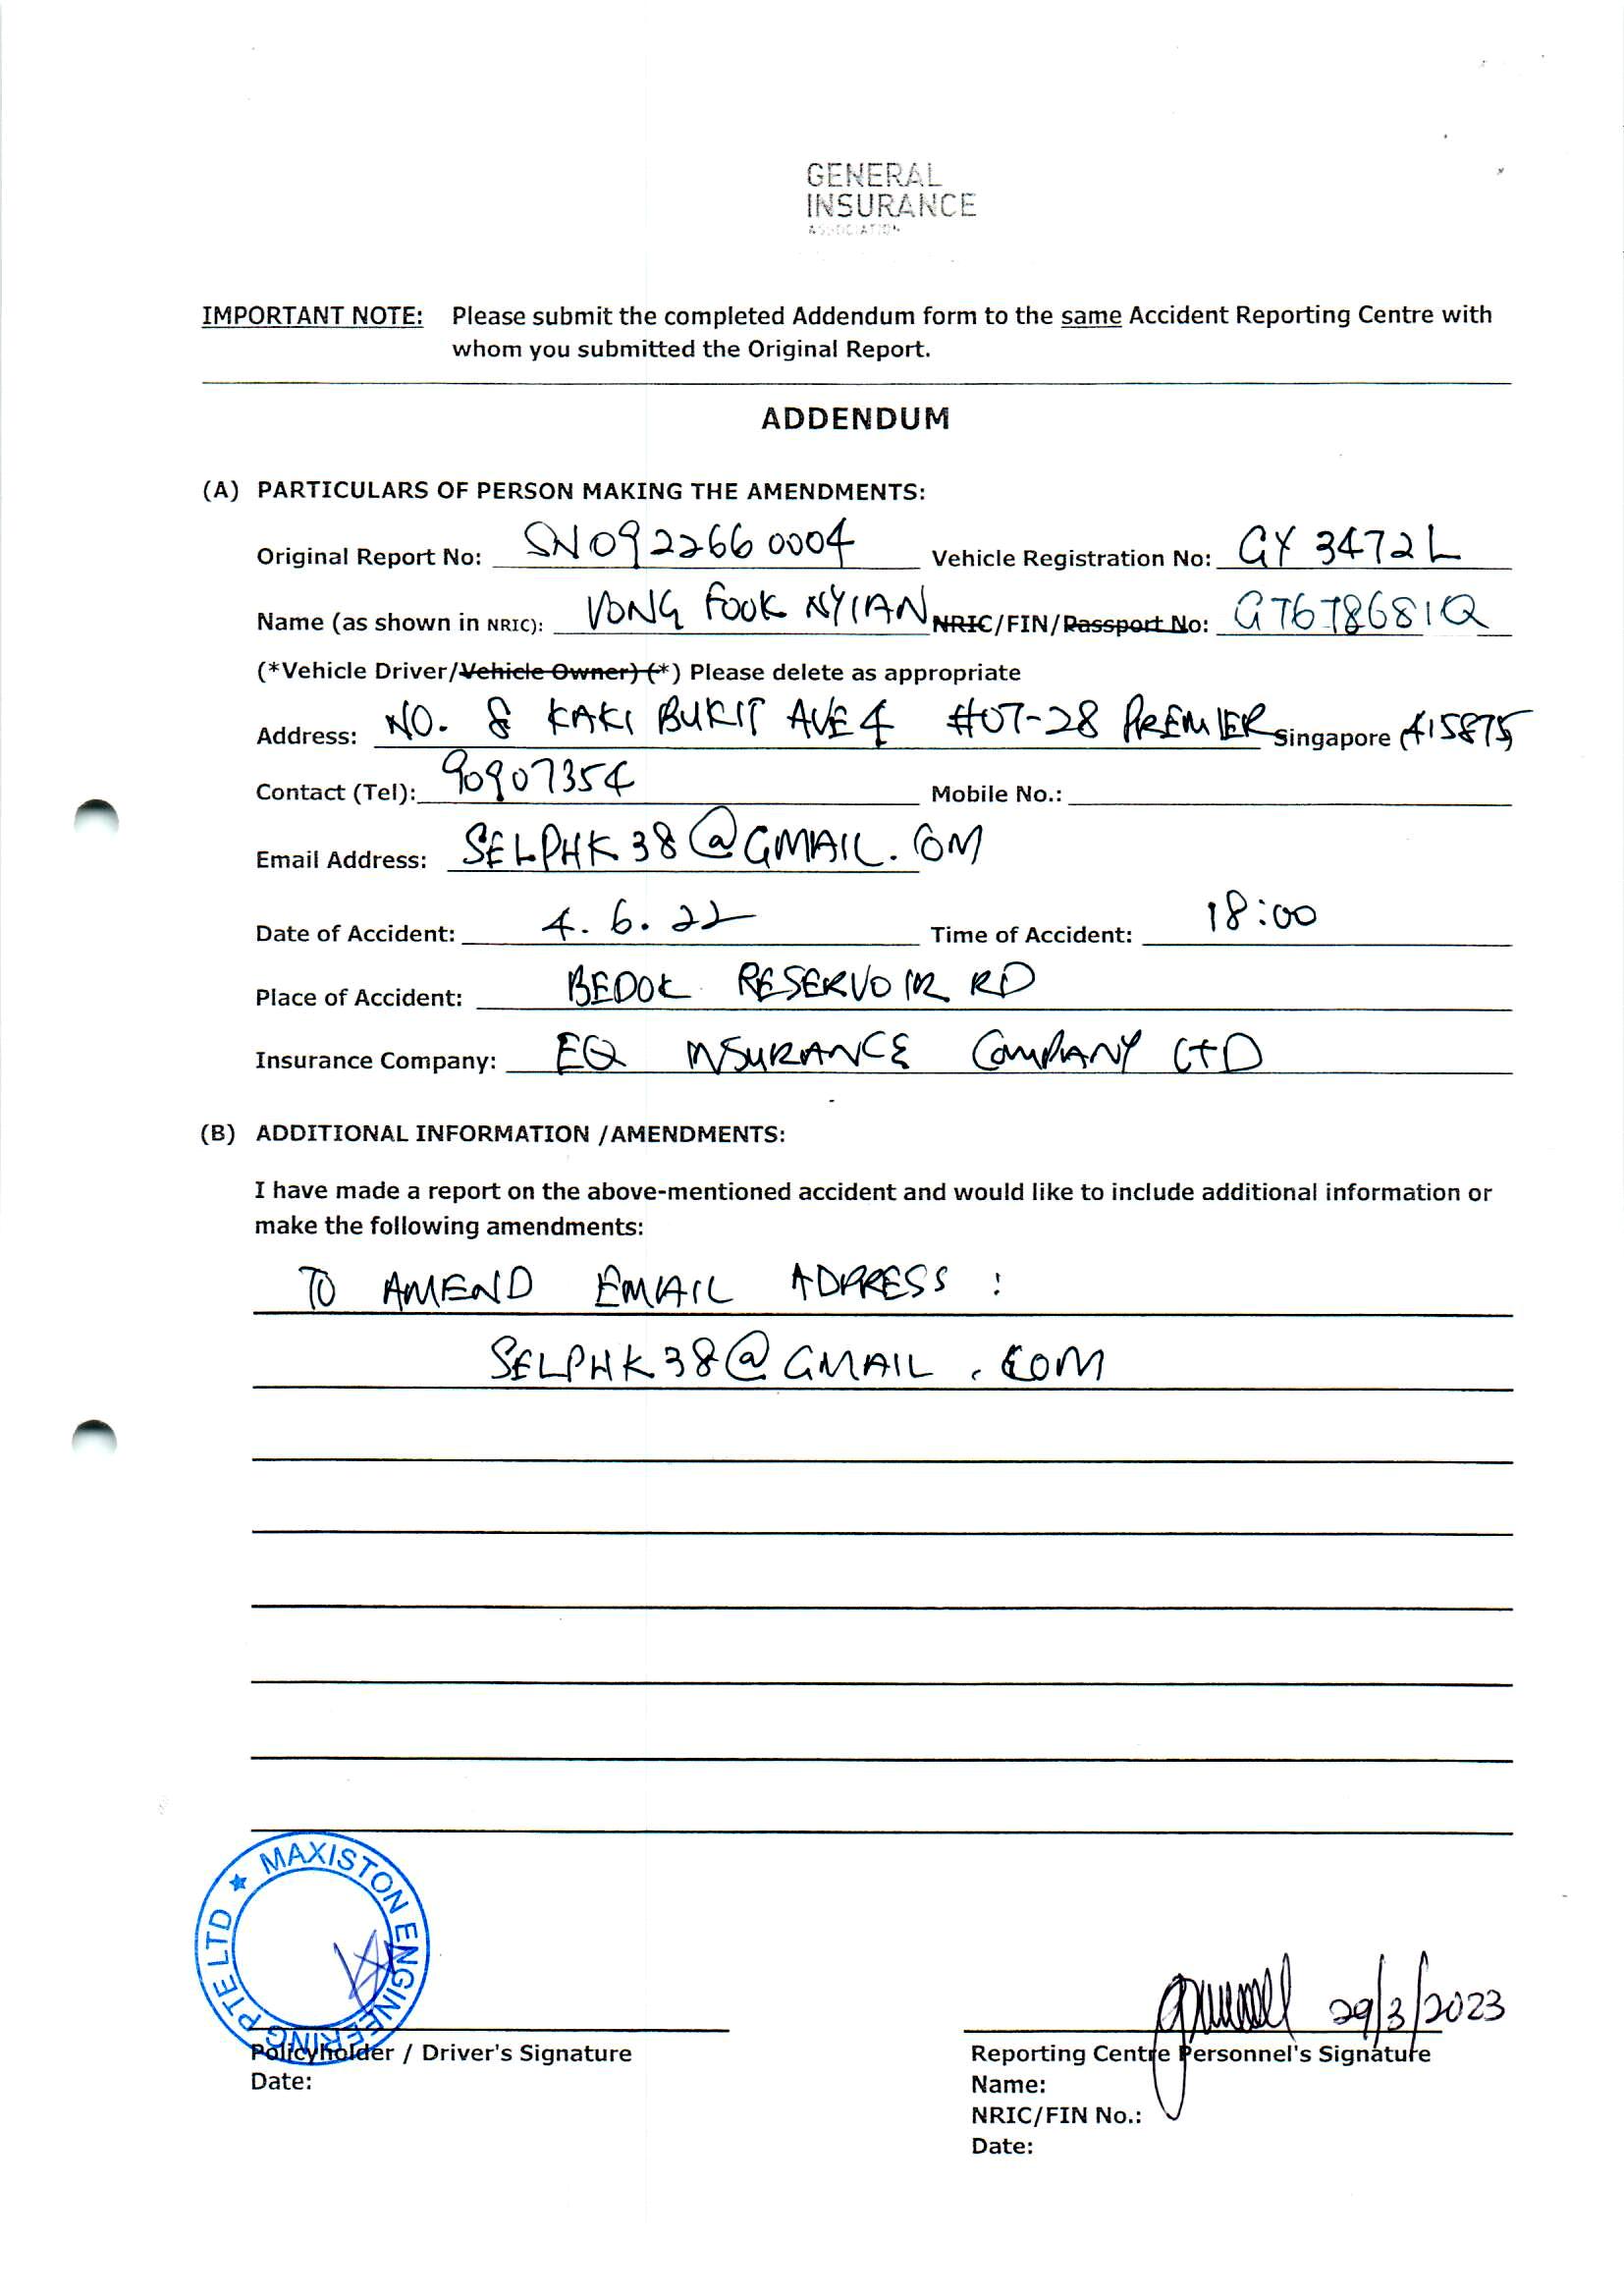 GENERAL
INSURANCE
ASSOCIATION
IMPORTANT NOTE: Please submit the completed Addendum form to the same Accident Reporting Centre with
whom you submitted the Original Report.
ADDENDUM
(A) PARTICULARS OF PERSON MAKING THE AMENDMENTS:
Original Report No: SN0922660004 Vehicle Registration No: GY 3472L
Name (as shown in NRIC): VONG FOOK NYIAN NRIC/FIN/Passport No: G7678681Q
(*Vehicle Driver/Vehicle Owner) (*) Please delete as appropriate
Address: NO. 8 KAKI BUKIT AVE 4 #07-28 PREMIER Singapore (415875
Contact (Tel): 90907354 Mobile No.:
Email Address: SELPHK38@GMAIL.COM
Date of Accident: 4.6.22 Time of Accident: 18:00
Place of Accident: BEDOK RESERVOIR RD
Insurance Company: EQ INSURANCE COMPANY LTD
(B) ADDITIONAL INFORMATION /AMENDMENTS:
I have made a report on the above-mentioned accident and would like to include additional information or
make the following amendments:
TO AMEND EMAIL ADDRESS :
SELPHK38@GMAIL.COM
MAXISTON ENGINEERING PTE LTD
29/3/2023
Policyholder / Driver's Signature Reporting Centre Personnel's Signature
Date: Name:
NRIC/FIN No.:
Date: